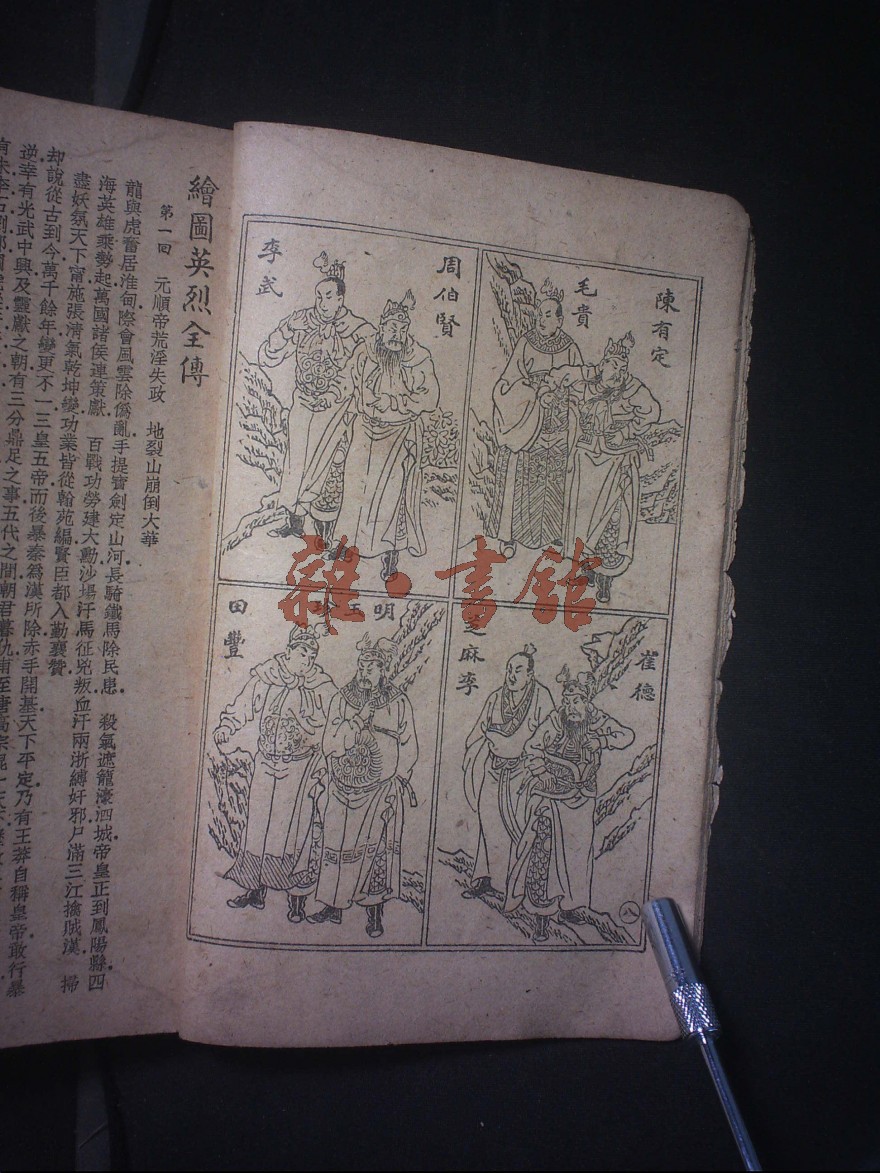 陳有定
毛貴
周伯賢
李武
崔德
芝麻李
明玉珍
田豐
八
雜·書館
繪圖英烈全傳
第一回 元順帝荒淫失政 地裂山崩倒大華
龍與虎奮居淮甸.際會風雲除僞亂.手提寶劍定山河.長騎鐵馬除民患. 殺氣遮籠濠泗城.帝皇正到鳳陽縣.四
海英雄乘勢起.萬國諸侯連策獻. 百戰功勞建大勳.沙場汗馬征兇叛.血汙兩浙縛奸邪.尸滿三江擒賊漢. 掃
盡妖氛天下甯.施張濟氣乾坤變.功業皆從翰苑編.賢臣都入勤襄贊.
却說從古到今.萬千餘年.變更不一.三皇五帝而後.暴秦爲漢所除.赤手開基.天下平定.乃有王莽自稱皇帝.敢行暴
逆.幸有光武中興.及靈獻之朝.有三分鼎足之事.五代之間.朝君暮仇.甫至唐高宗